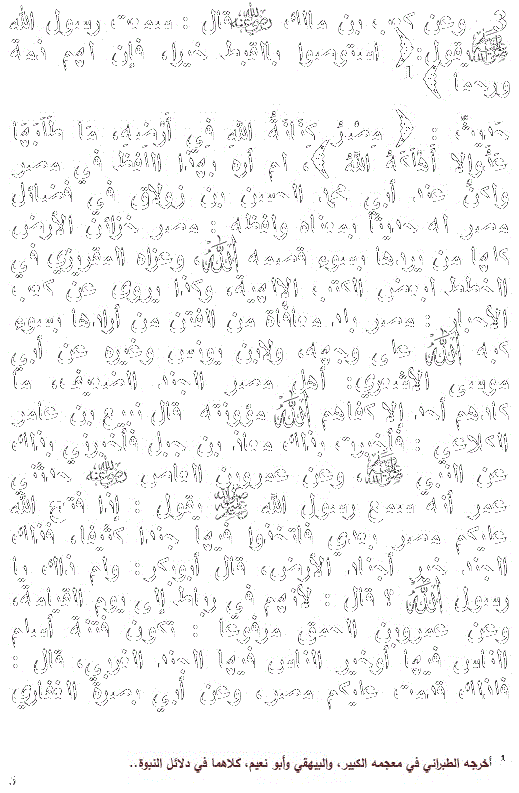 3 _ وعن كعب بن مالك ﷺ قال : سمعت رسول الله
ﷺ يقول: ﴿ استوصوا بالقبط خيرا، فإن لهم ذمة
ورحما ﴾ 1
حَدِيثٌ : ﴿ مِصْرُ كِنَانَةُ اللهِ فِي أَرْضِهِ، مَا طَلَبَهَا
عَدُوٌّ إلا أَهْلَكَهُ اللهُ ﴾، لم أره بهذا اللفظ في مصر
ولكن عند أبي محمد الحسن بن زولاق في فضائل
مصر له حديثاً بمعناه ولفظه : مصر خزائن الأرض
كلها من يردها بسوء قصمه الله، وعزاه المقريزي في
الخطط لبعض الكتب الإلهية، وكذا يروى عن كعب
الأحبار : مصر بلد معافاة من الفتن من أرادها بسوء
كبه الله على وجهه، ولابن يونس وغيره عن أبي
موسى الأشعري: أهل مصر الجند الضعيف، ما
كادهم أحد إلا كفاهم الله مؤونته قال تبيع بن عامر
الكلاعي : فأخبرت بذلك معاذ بن جبل فأخبرني بذلك
عن النبي ﷺ، وعن عمروبن العاص ﷺ حدثني
عمر أنه سمع رسول الله ﷺ يقول : إذا فتح الله
عليكم مصر بعدي فاتخذوا فيها جندا كثيفا، فذلك
الجند خير أجناد الأرض، قال أبوبكر: ولم ذلك يا
رسول الله ؟ قال : لأنهم في رباط إلى يوم القيامة،
وعن عمروبن الحمق مرفوعا : تكون فتنة أسلم
الناس فيها أوخير الناس فيها الجند الغربي، قال :
فلذلك قدمت عليكم مصر، وعن أبي بصرة الغفاري
1 أخرجه الطبراني في معجمه الكبير، والبيهقي وأبو نعيم، كلاهما في دلائل النبوة..